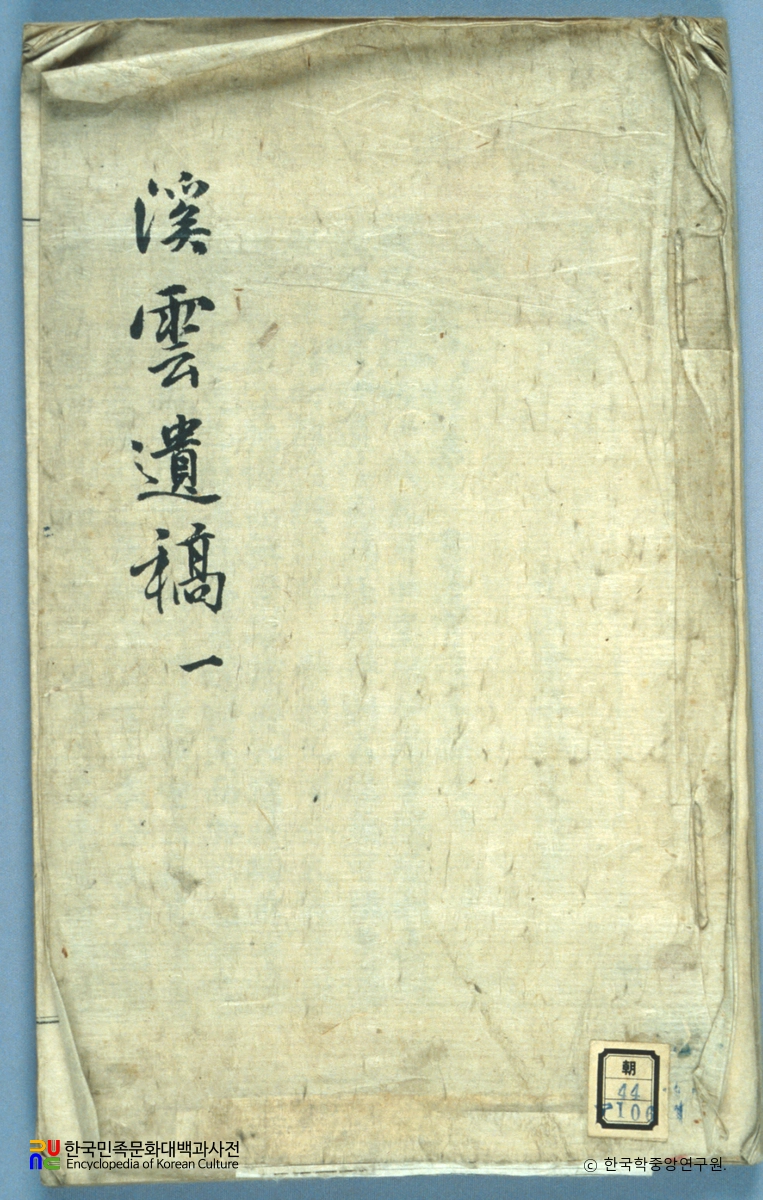 溪雲遺稿 一
朝
44
한국민족문화대백과사전
Encyclopedia of Korean Culture
© 한국학중앙연구원.